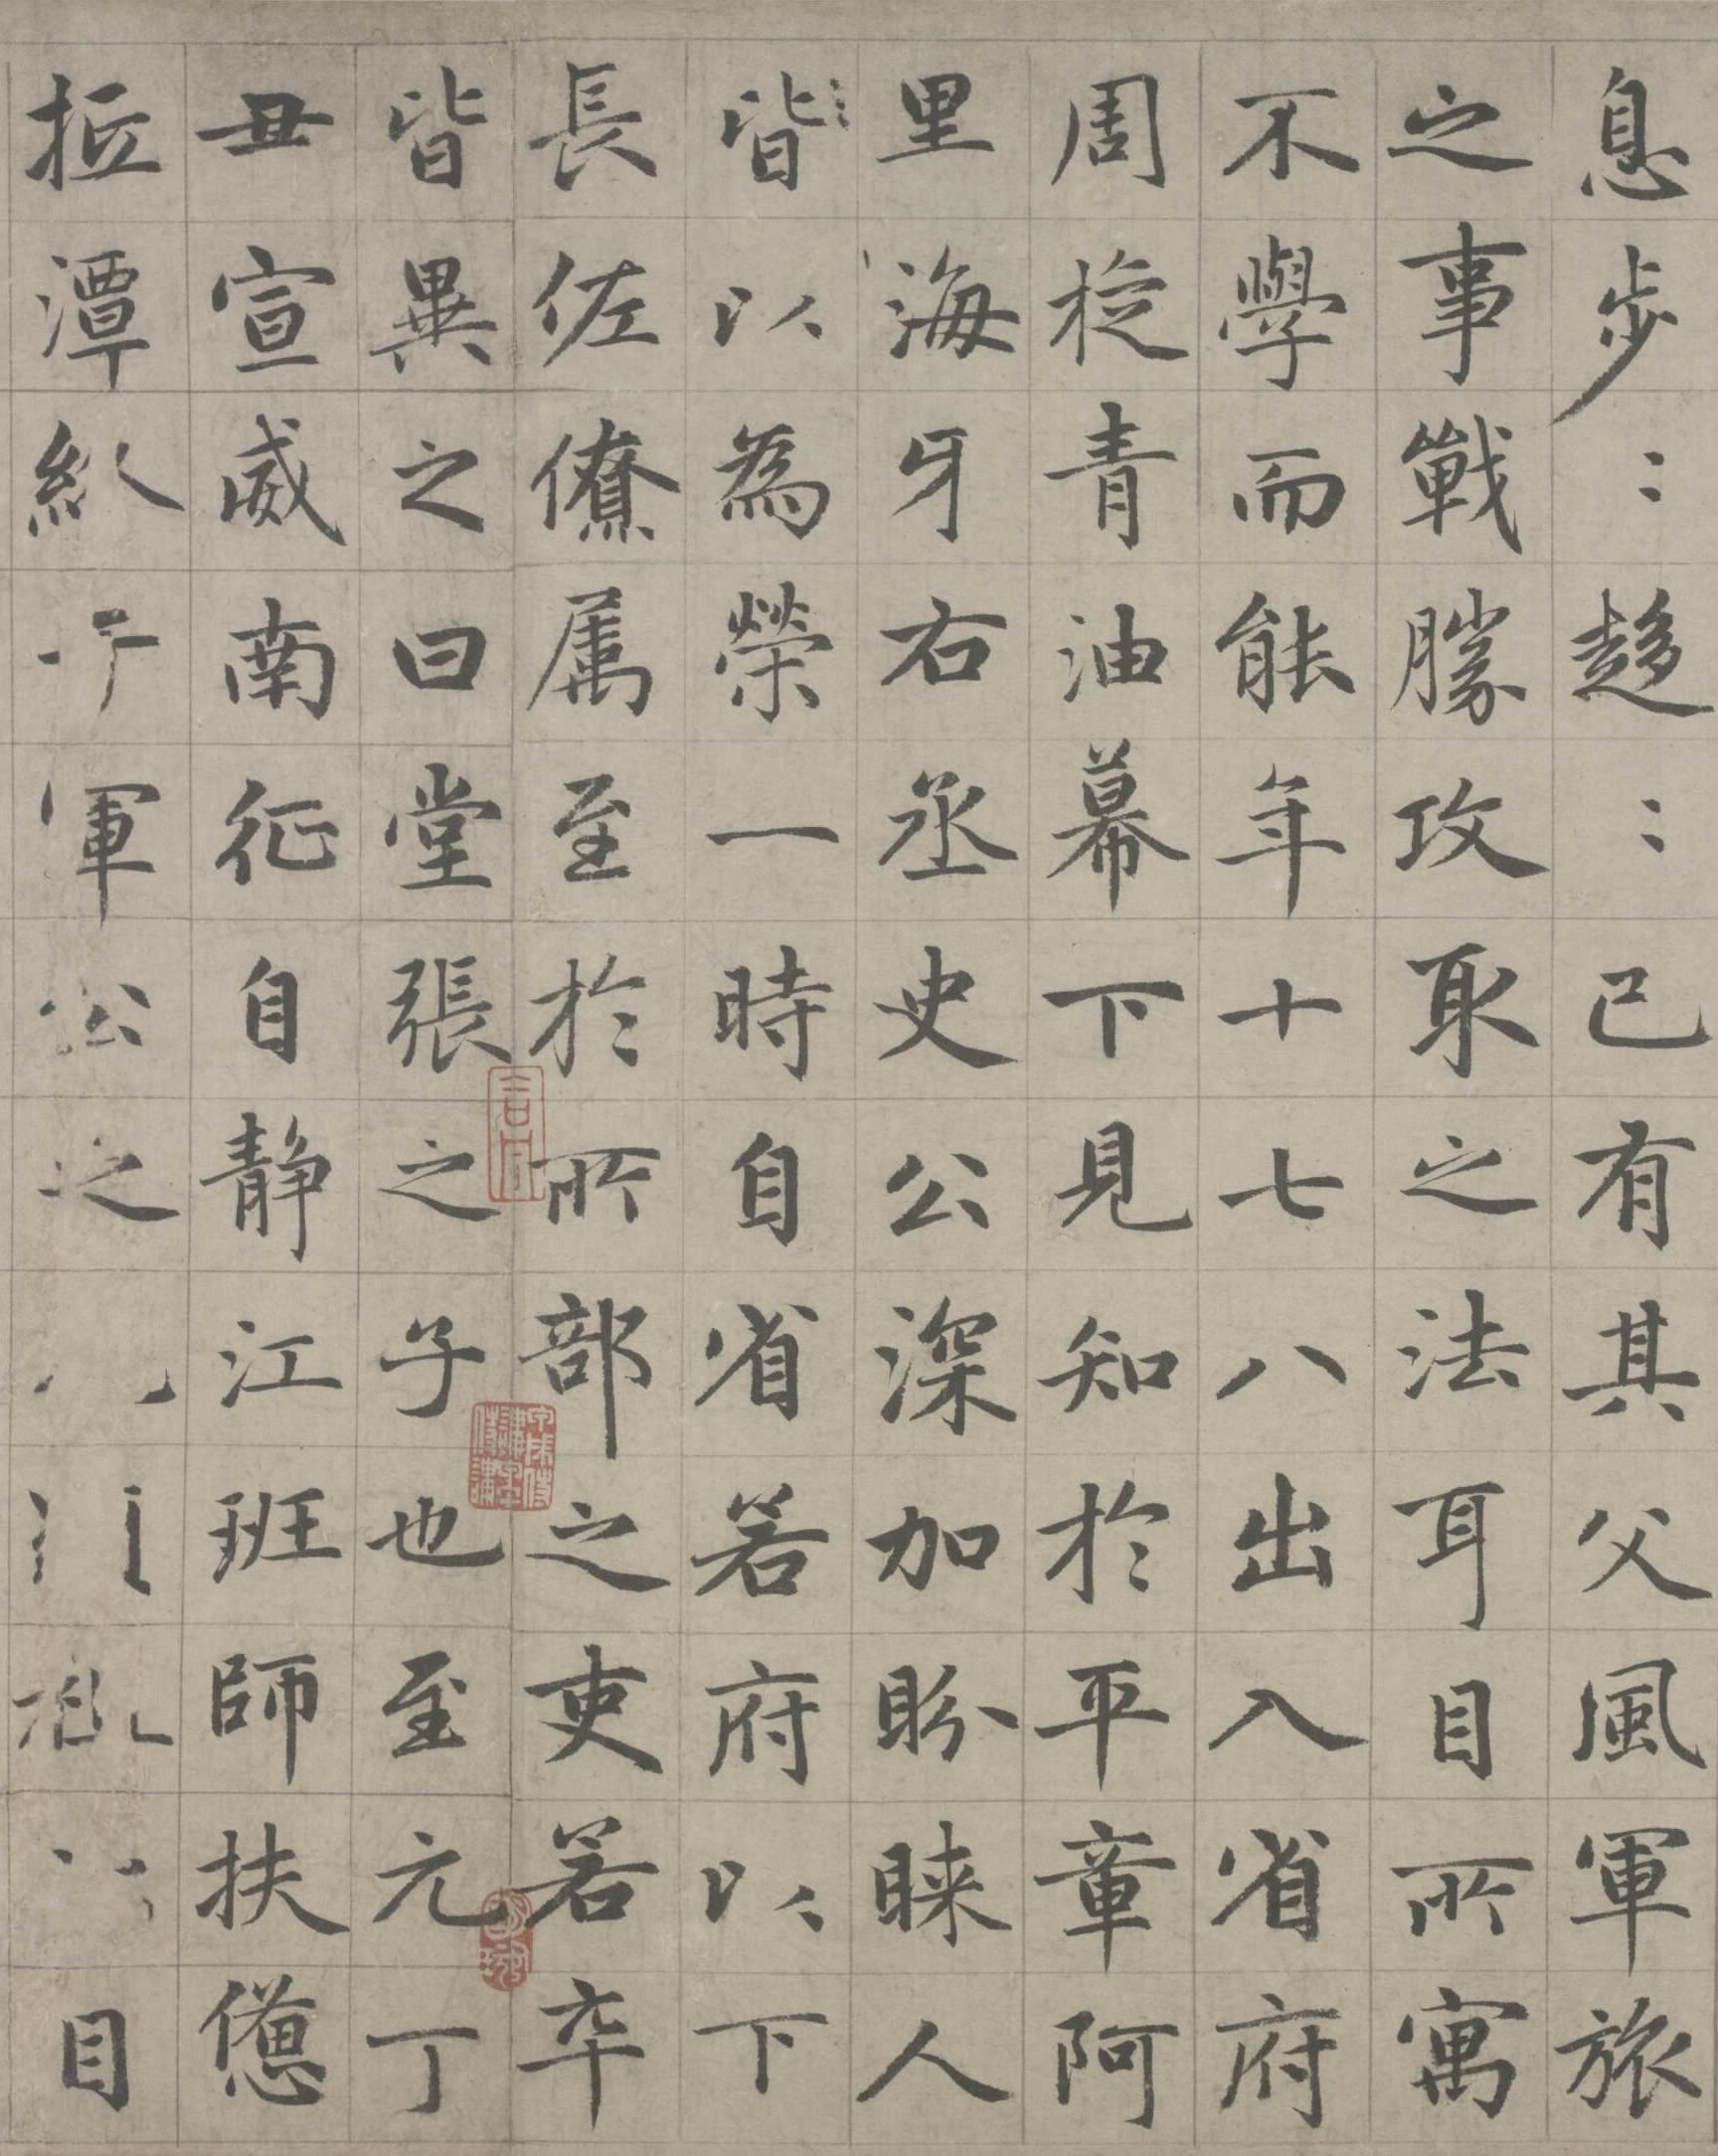 息步〻趍〻已有其父風軍旅
之事戰勝攻取之法耳目所寓
不學而能年十七八出入省府
周旋青油幕下見知於平章阿
里海牙右丞史公深加盼睞人
皆以為榮一時自省若府以下
長佐僚属至於所部之吏若卒
皆異之曰堂張之子也至元丁
丑宣威南征自静江班師扶憊
拉潭 軍公之 目